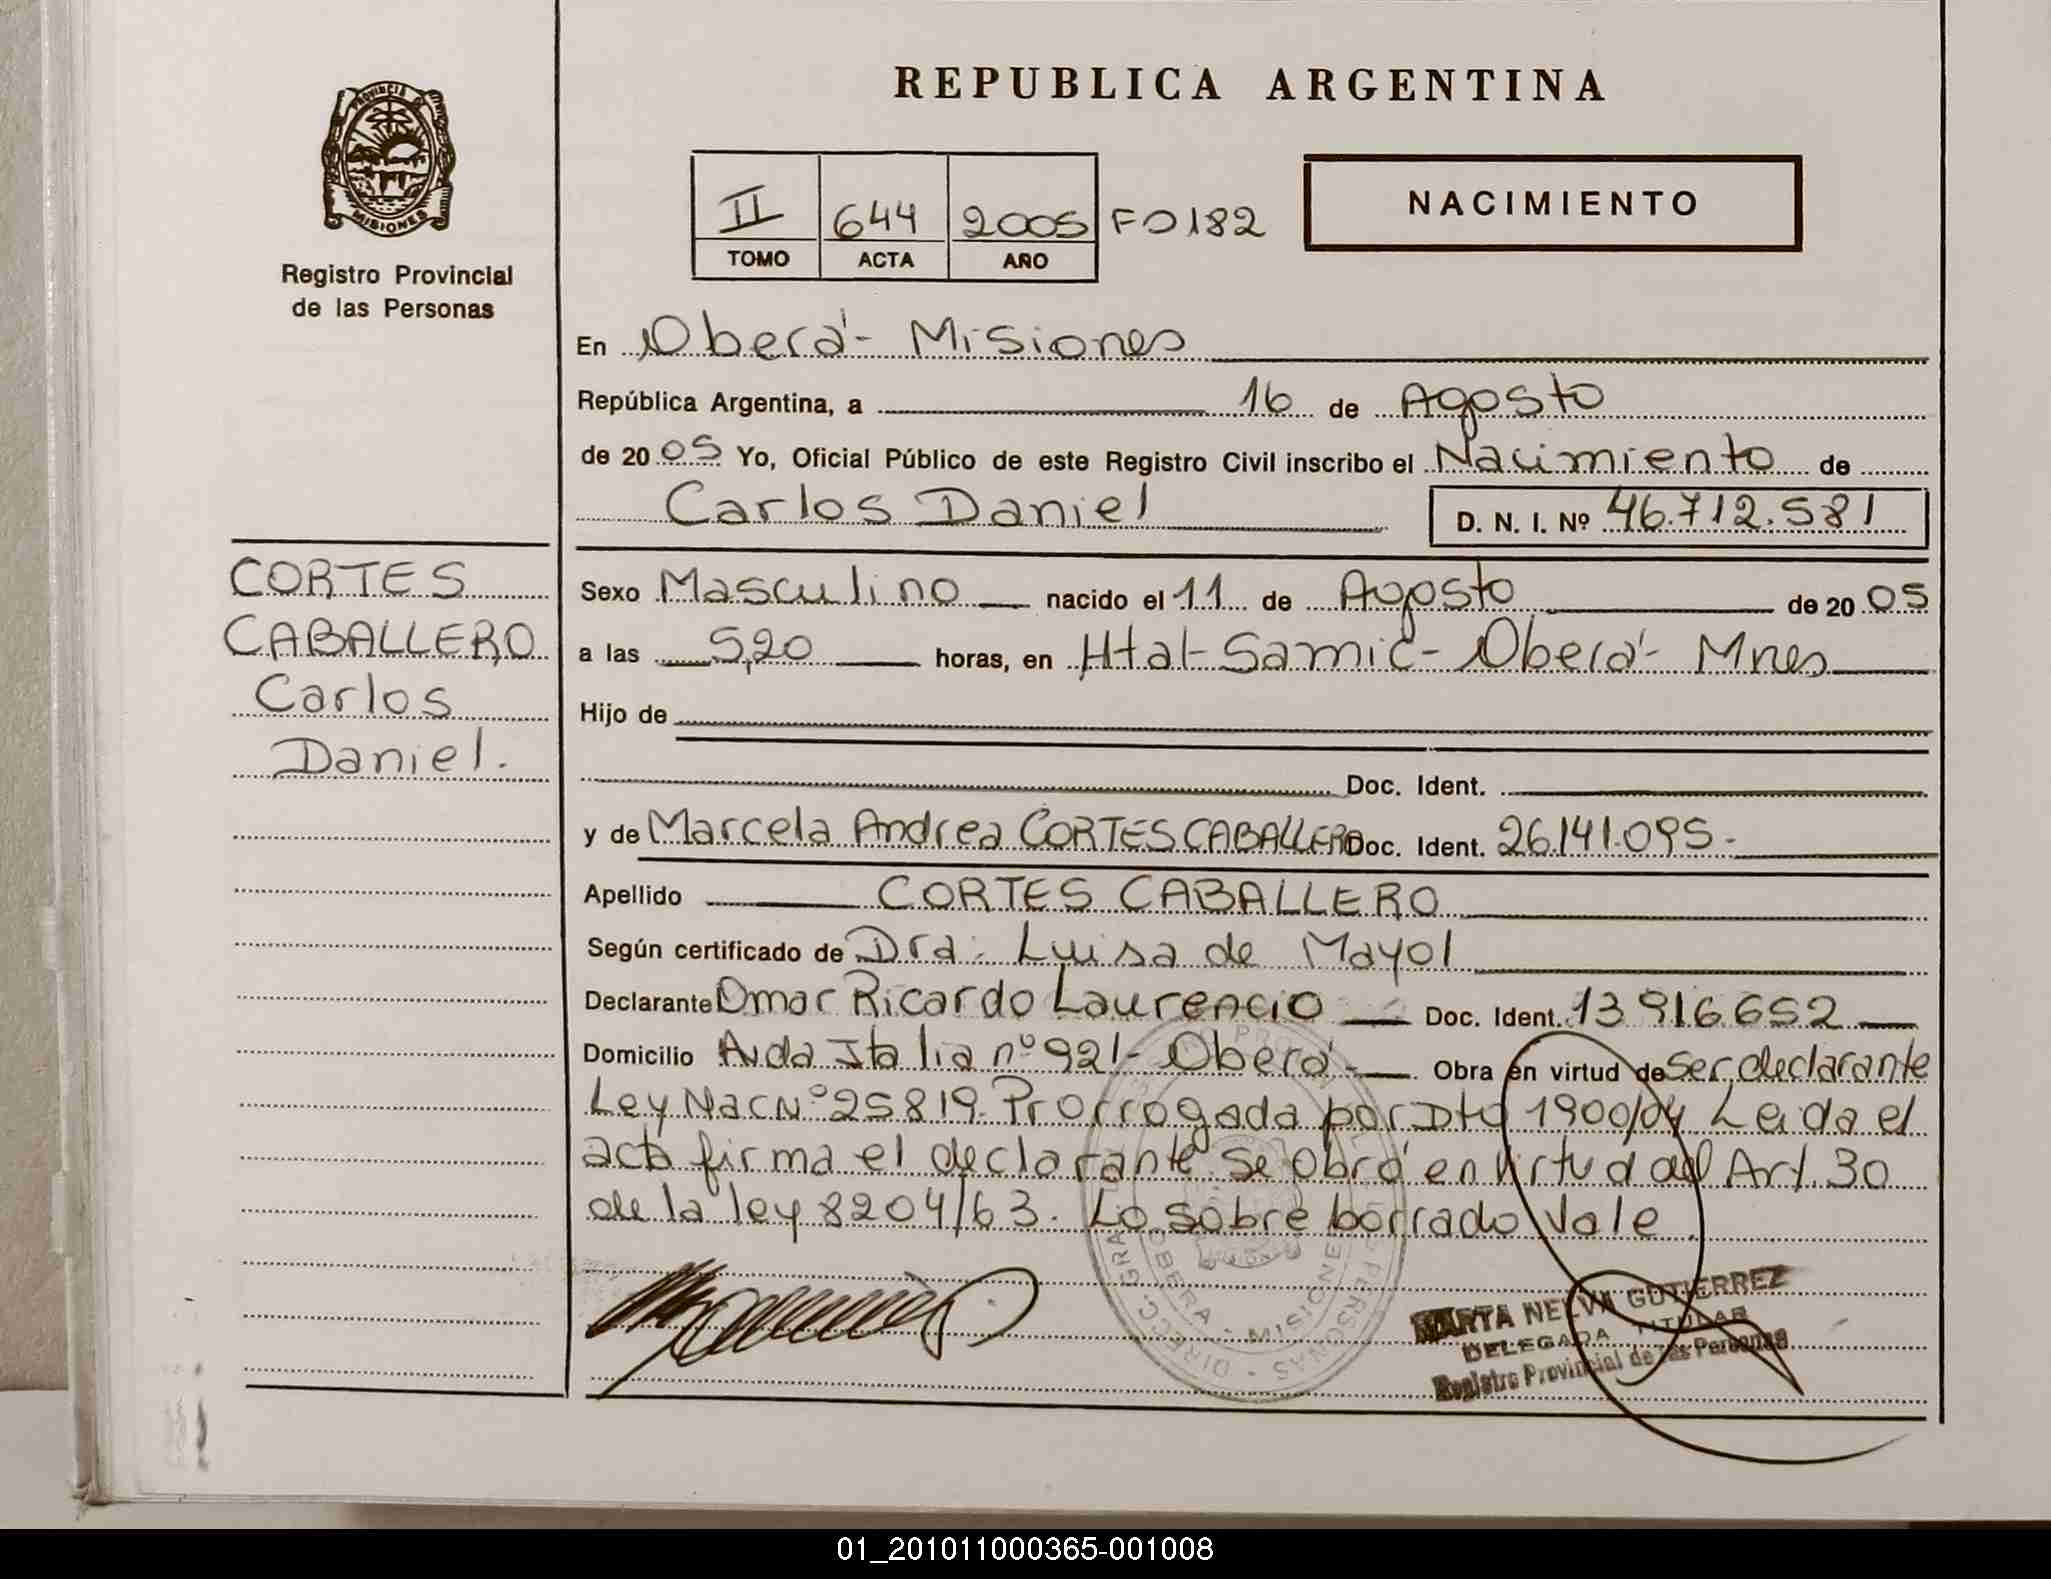 PROVINCIA DE
MISIONES
Registro Provincial
de las Personas
REPUBLICA ARGENTINA
II 644 2005 FO182
TOMO ACTA AÑO
NACIMIENTO
En Oberá - Misiones
República Argentina, a 16 de Agosto
de 2005 Yo, Oficial Público de este Registro Civil inscribo el Nacimiento de
Carlos Daniel D. N. I. Nº 46.712.581
CORTES
CABALLERO
Carlos
Daniel.
Sexo Masculino nacido el 11 de Agosto de 2005
a las 5,20 horas, en Htal - Samic - Oberá - Mnes
Hijo de
Doc. Ident.
y de Marcela Andrea CORTES CABALLERO Doc. Ident. 26.141.095.-
Apellido CORTES CABALLERO
Según certificado de Dra: Luisa de Mayol
Declarante Omar Ricardo Laurencio Doc. Ident. 13 916.652
Domicilio Avda Italia nº 921 - Oberá - Obra en virtud de ser declarante
Ley Nac Nº 25819. Prorrogada por Dto 1900/04 Leida el
acta firma el declarante se obró en virtud del Art. 30
de la ley 8204/63. Lo sobre borrado Vale
MARTA NELVA GUTIERREZ
DELEGADA TITULAR
Registro Provincial de las Personas
01_201011000365-001008